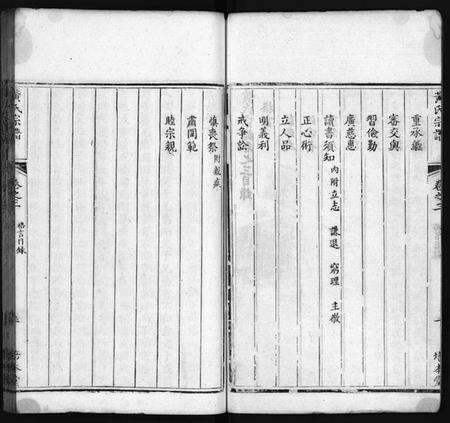 黃氏宗譜
卷之二
重承繼
審交與
習儉勤
廣慈惠
讀書須知 內附立志 謙退 窮理 主敬
正心術
立人品
明義利
戒爭訟
慎喪祭 附載疾
肅閫範
睦宗親
黃氏宗譜
卷之二
格言目錄